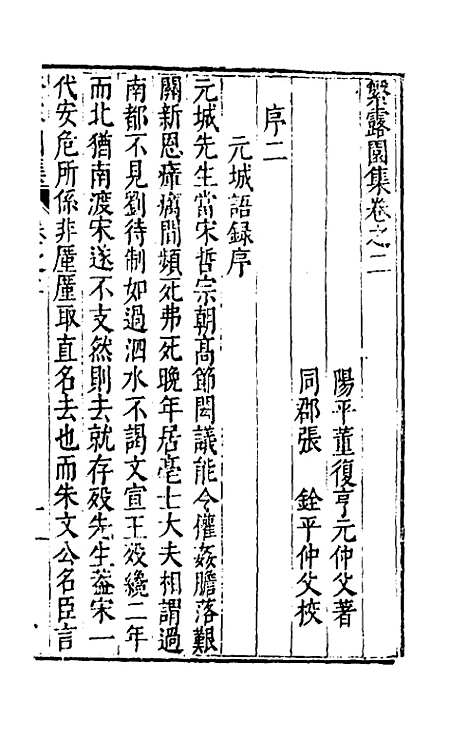 繁露園集卷之二
陽平董復亨元仲父著
同郡張　銓平仲父校
序二
元城語録序
元城先生當宋哲宗朝高節閎議能令僉姦膽落艱
關新恩瘴癘間頻死弗死晚年居亳士大夫相謂過
南都不見劉待制如過泗水不謁文宣王歿纔二年
而北猶南渡宋遂不支然則去就存歿先生葢宋一
代安危所係非厪厪取直名去也而朱文公名臣言